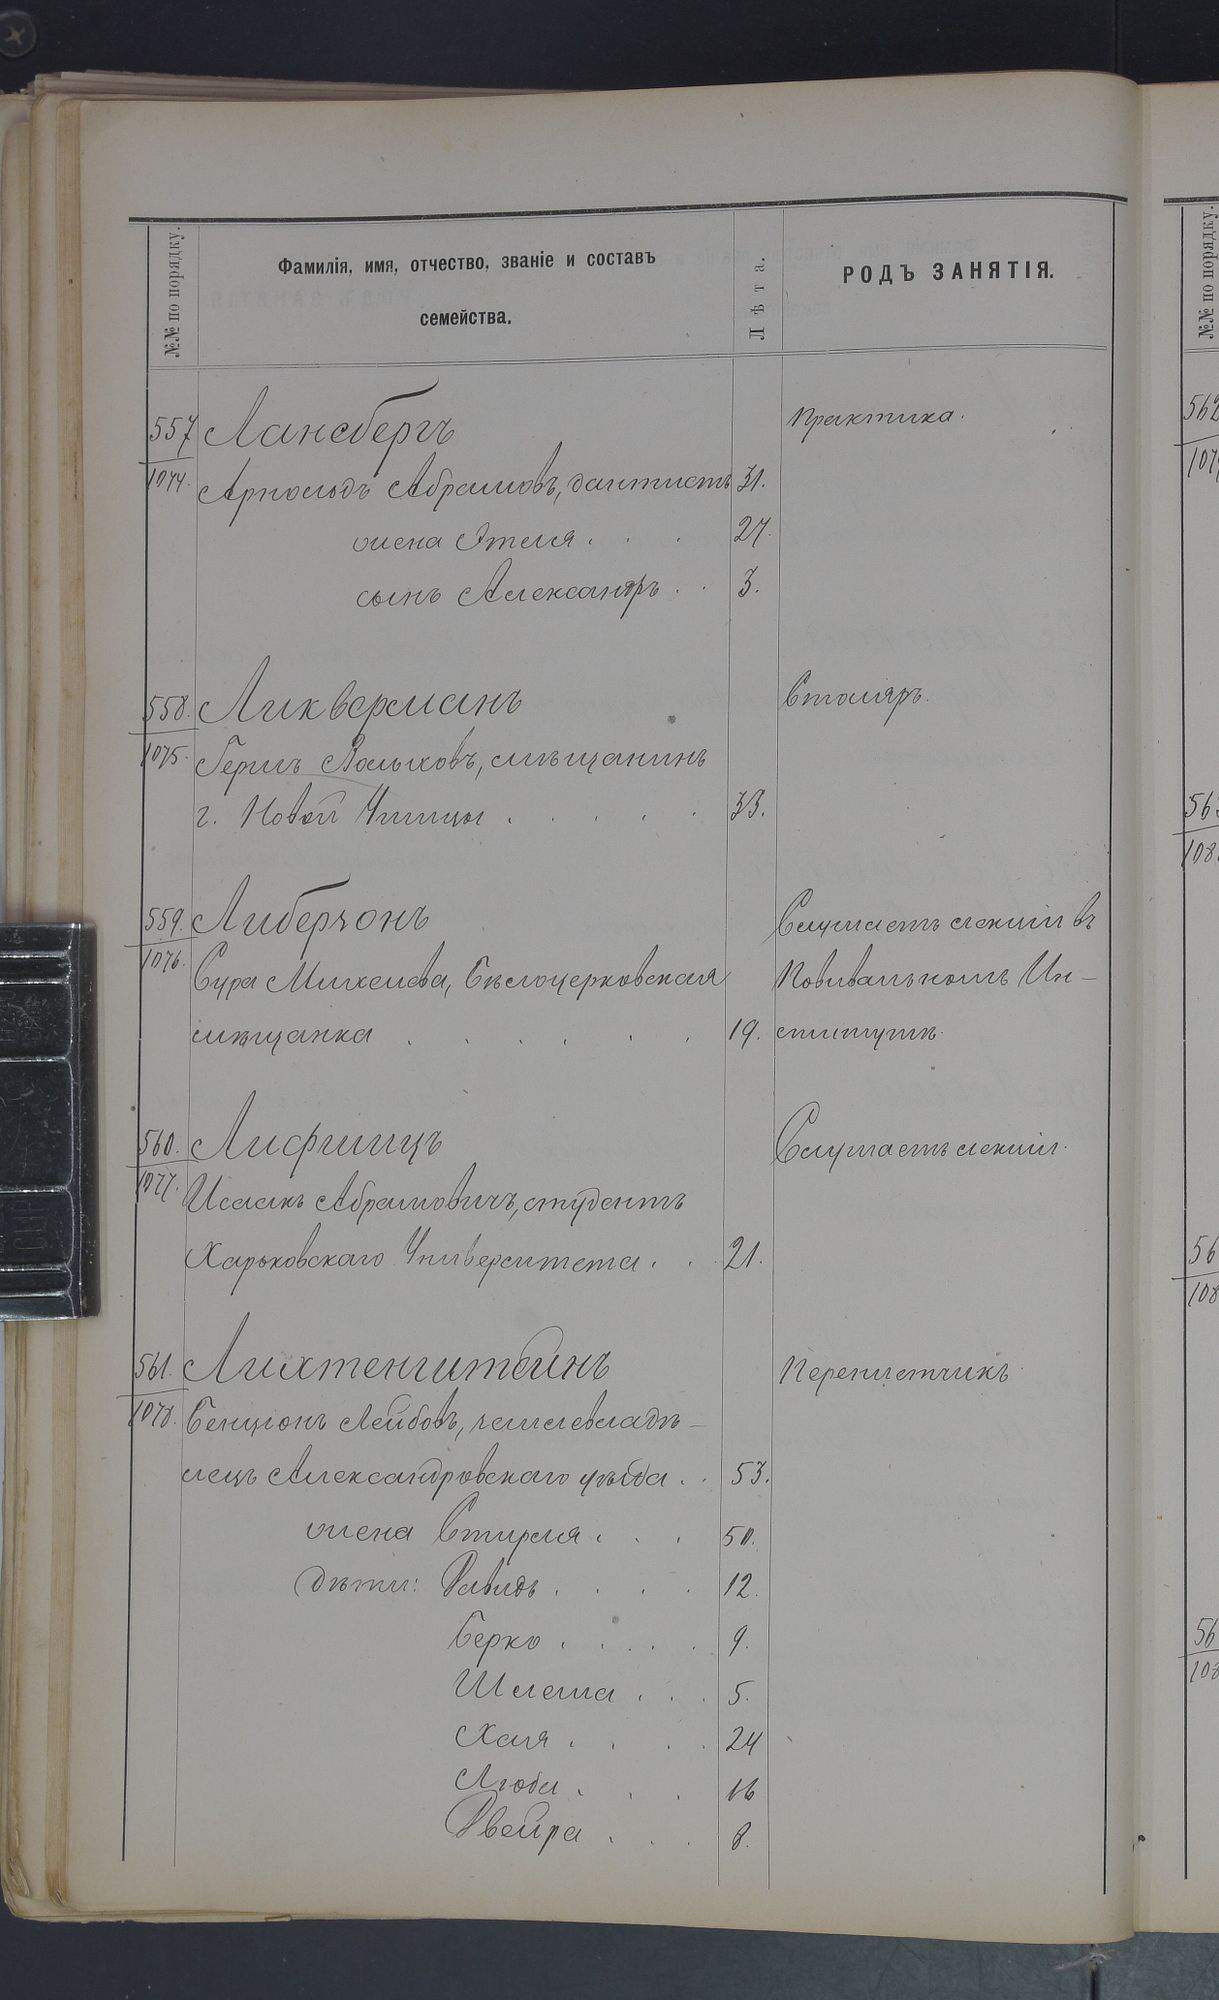 №№ по порядку.
Фамилія, имя, отчество, званіе и составъ
семейства.
Лѣта.
РОДЪ ЗАНЯТІЯ.
557 Лансбергъ Практика.
1074. Арнольдъ Абрамовъ, дантистъ 31.
жена Этля . . . 27.
сынъ Александръ . . 3.
558. Ликверманъ Столяръ.
1075. Гершъ, мѣщанинъ
г. Новой Ушицы . . . . . 33.
559. Либерзонъ Слушаетъ лекціи въ
1076. Сура Михелева, Бѣлоцерковская Повивальномъ Ин-
мѣщанка . . . . . . 19. ститутѣ.
560. Лифшицъ Слушаетъ лекціи.
1077. Исаакъ Абрамовичъ, студентъ
Харьковскаго Университета . . 21.
561. Лихтенштейнъ Переплетчикъ
1078. Бенціонъ Лейбовъ, землевладѣ-
лецъ Александровскаго уѣзда . . 53.
жена Стирля . . . 50.
дѣти: Давидъ . . . . 12.
Берко . . . . 9.
Шлема . . . 5.
Хая . . . . 24
Люба . . . 16
Двейра . . . 8.
№№ по порядку.
562
563
108
56
108
56
108